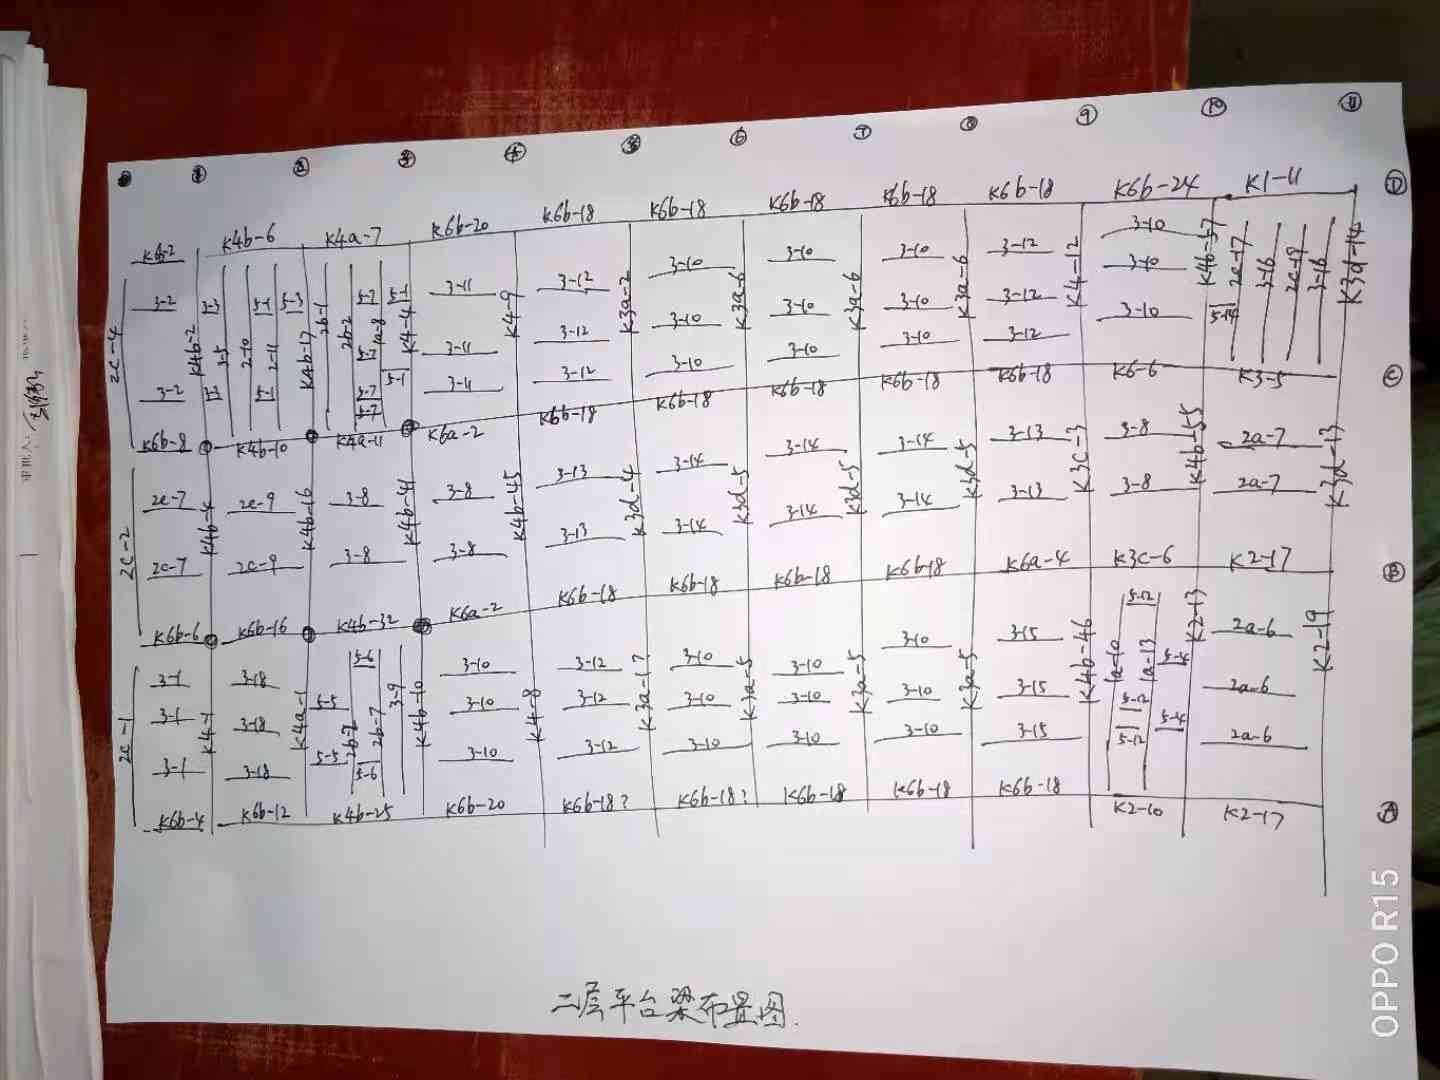 ① ② ③ ④ ⑤ ⑥ ⑦ ⑧ ⑨ ⑩ ⑪
K4b-6 K4a-7 K6b-20 K6b-18 K6b-18 K6b-18 K6b-18 K6b-18 K6b-24 K1-11 Ⓓ
3-2 5-3 5-1 5-3 2b-1 5-7 5-1 3-11 3-12 3-10 3-10 3-10 3-12 3-10
2c-4 K4b-2 3-5 2-10 2-11 K4b-17 2b-2 1a-8 K4-4 K4-9 K3a-2 K3a-6 K3a-6 K3a-6 K4-12 K4b-37 2c-17 3-16 2c-18 3-16 K3d-14
3-11 3-12 3-10 3-10 3-10 3-12 3-10
3-2 5-1 5-7 5-1 3-11 3-12 3-10 3-10 3-10 3-12 3-10 5-14
5-7
5-7
K6b-8 K4b-10 K4a-11 K6a-2 K6b-18 K6b-18 K6b-18 K6b-18 K6b-18 K6-6 K3-5 Ⓒ
2c-7 2c-9 3-8 3-8 3-13 3-14 3-14 3-14 3-13 3-8 2a-7
2c-2 K4b-4 K4b-16 K4b-41 K4b-45 K3d-4 K3d-5 K3d-5 K3d-5 K3c-3 K4b-55 K3d-13
2c-7 2c-9 3-8 3-8 3-13 3-14 3-14 3-14 3-13 3-8 2a-7
K6b-6 K6b-16 K4b-32 K6a-2 K6b-18 K6b-18 K6b-18 K6b-18 K6a-4 K3c-6 K2-17 Ⓑ
3-1 3-18 5-6 3-10 3-12 3-10 3-10 3-10 3-15 5-12 2a-6
3-1 3-18 5-5 3-10 3-12 3-10 3-10 3-10 3-15 5-12 5-4 2a-6
2c-1 K4-7 K4a-1 2b-7 2b-7 3-9 K4b-10 K4-8 K3a-17 K3a-5 K3a-5 K3a-5 K4b-46 1a-10 1a-13 K2-13 K2-19
3-1 3-18 5-5 5-6 3-10 3-12 3-10 3-10 3-10 3-15 5-12 5-4 2a-6
K6b-4 K6b-12 K4b-25 K6b-20 K6b-18? K6b-18? K6b-18 K6b-18 K6b-18 K2-10 K2-17 Ⓐ
二层平台梁布置图.
审批人:
OPPO R15